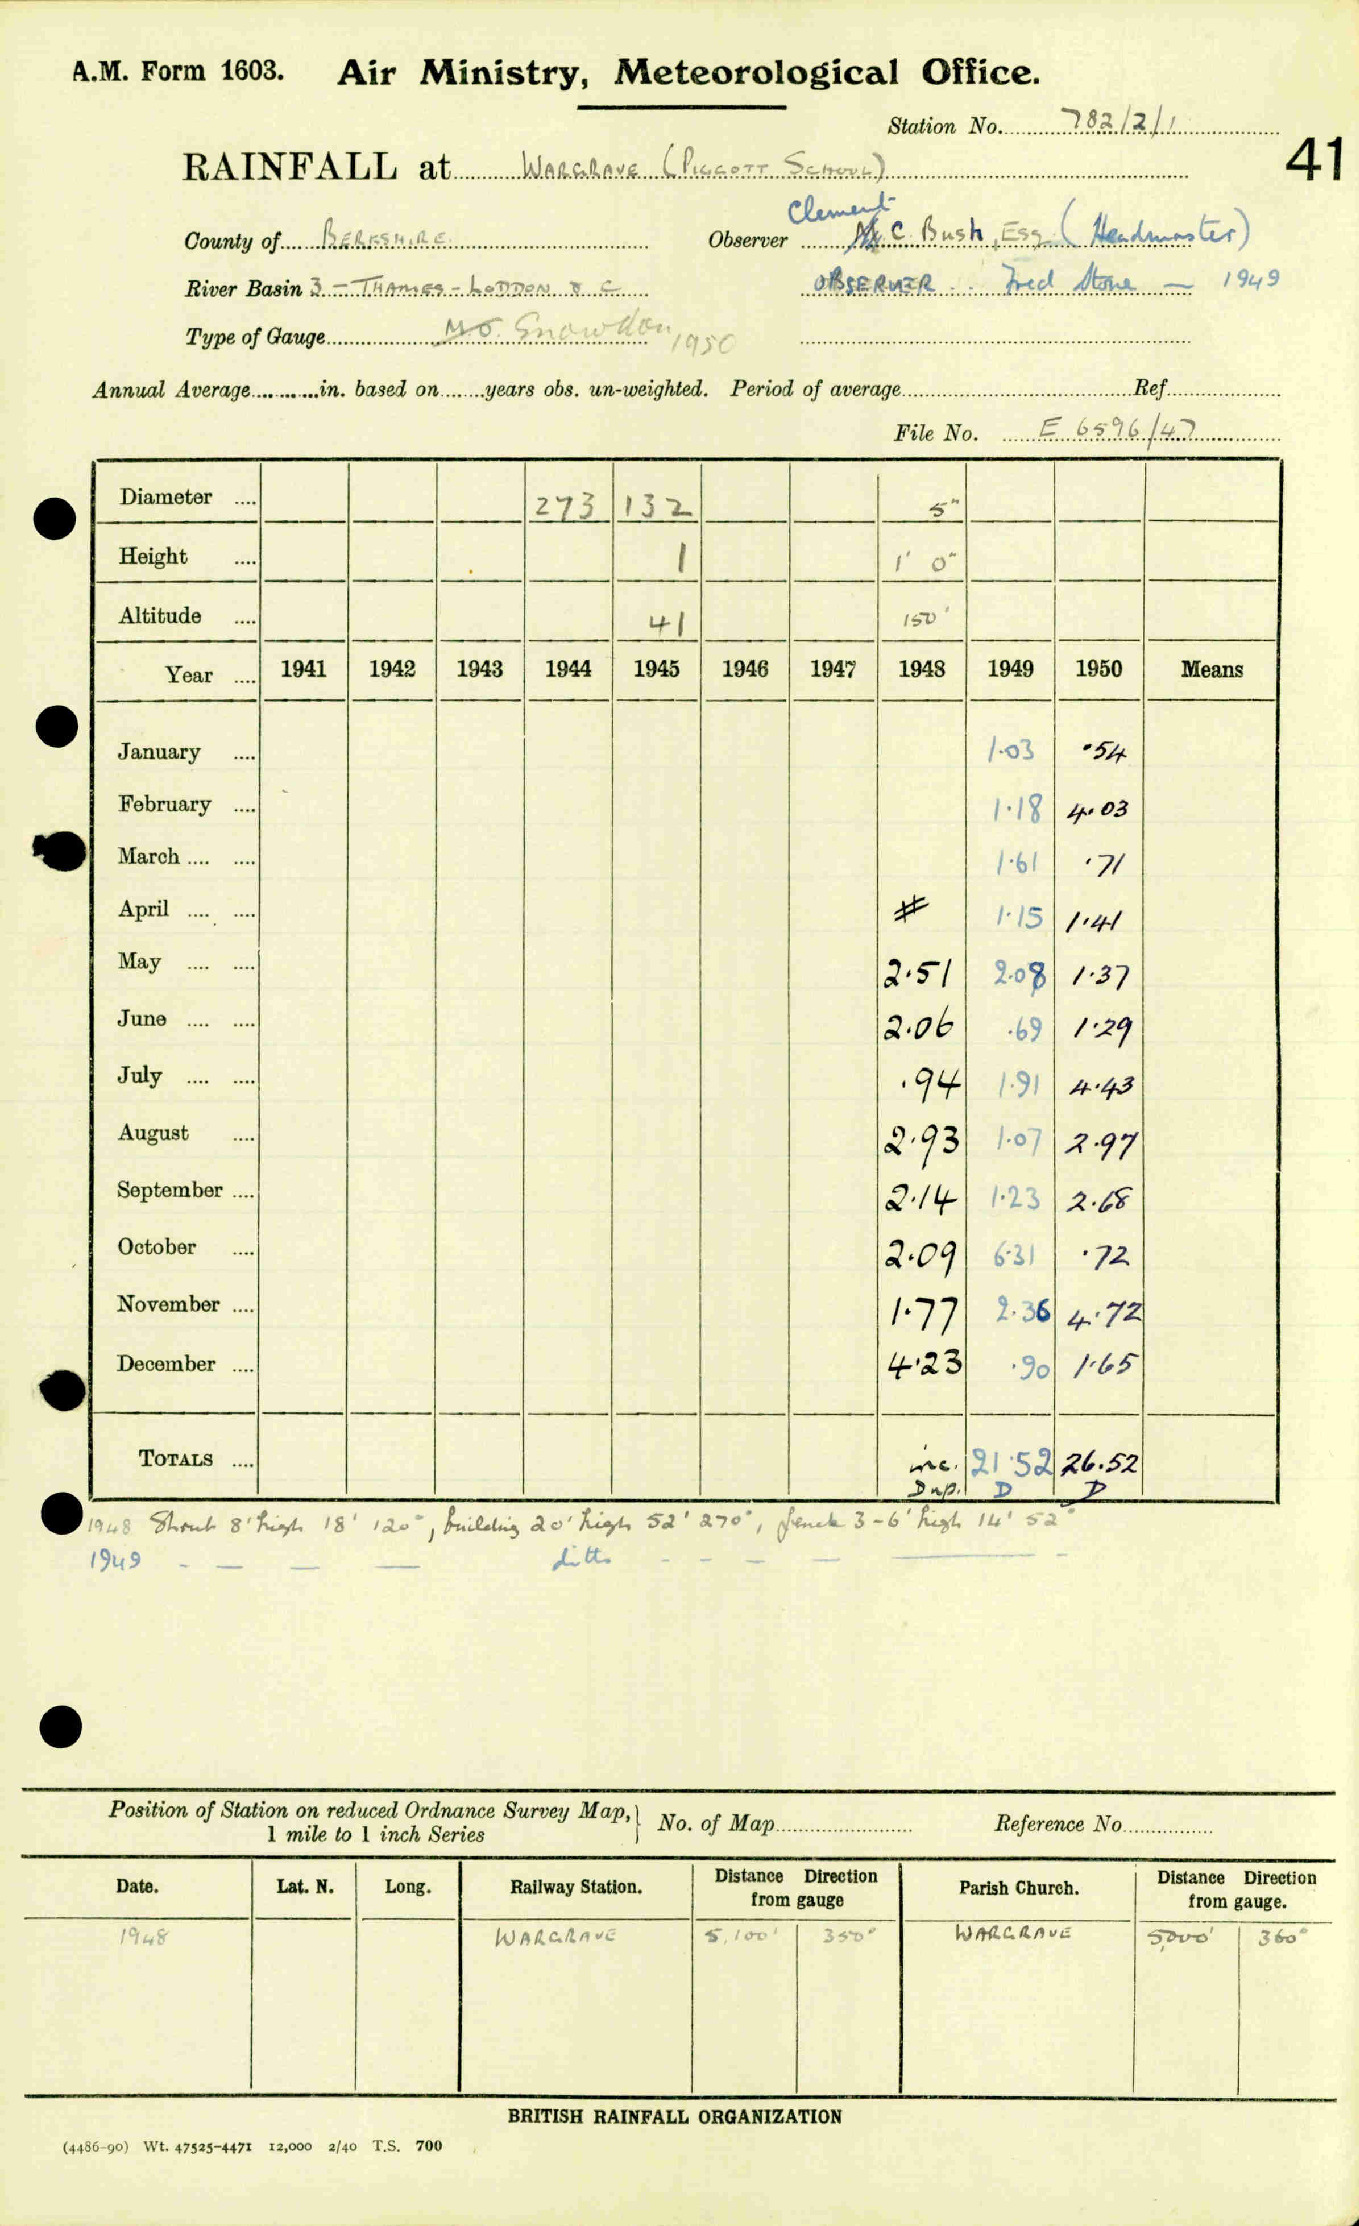 A.M. Form 1603. Air Ministry, Meteorological Office.
Station No. 782/2/1
41
RAINFALL at WARGRAVE (PIGGOTT SCHOOL)
Clement
County of BERKSHIRE Observer C. Bush, Esq. (Headmaster)
River Basin 3 - THAMES - LODDON & C OBSERVER .. Fred Stone — 1949
Type of Gauge M.O. Snowdon 1950
Annual Average in. based on years obs. un-weighted. Period of average Ref.
File No. E 6596/47
Diameter .... 273 132 5"
Height .... 1 1' 0"
Altitude .... 41 150'
Year .... 1941 1942 1943 1944 1945 1946 1947 1948 1949 1950 Means
January .... 1.03 .54
February .... 1.18 4.03
March .... .... 1.61 .71
April .... .... # 1.15 1.41
May .... .... 2.51 2.08 1.37
June .... .... 2.06 .69 1.29
July .... .... .94 1.91 4.43
August .... 2.93 1.07 2.97
September .... 2.14 1.23 2.68
October .... 2.09 6.31 .72
November .... 1.77 2.36 4.72
December .... 4.23 .90 1.65
TOTALS .... inc. 21.52 26.52
Dup. D D
1948 Shrub 8' high 18' 120°, building 20' high 52' 270°, fence 3-6' high 14' 52°
1949 - — — — ditto - - — — — -
Position of Station on reduced Ordnance Survey Map, No. of Map Reference No.
1 mile to 1 inch Series
Date. Lat. N. Long. Railway Station. Distance Direction from gauge Parish Church. Distance Direction from gauge.
1948 WARGRAVE 5,100' 350° WARGRAVE 5,000' 360°
BRITISH RAINFALL ORGANIZATION
(4486-90) Wt. 47525-4471 12,000 2/40 T.S. 700